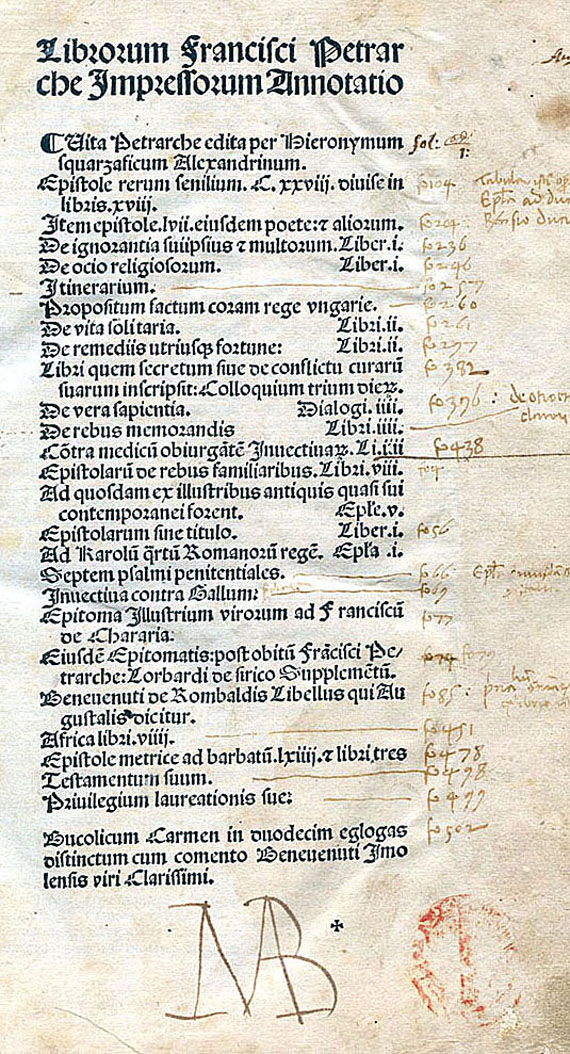 Librorum Francisci Petrar
che Impressorum Annotatio
¶ Uita Petrarche edita per Hieronymum fol:
squarzaficum Alexandrinum. 1:
Epistole rerum senilium. C. xxviii. diuise in fo204
libris. xviii.
Item epistole. lvii. eiusdem poete: ⁊ aliorum. fo204
De ignorantia suiipsius ⁊ multorum. Liber. i. fo236
De ocio religiosorum. Liber. i. fo246
Itinerarium. fo257
Propositum factum coram rege vngarie. fo260
De vita solitaria. Libri. ii. fo261
De remediis utriusqꝫ fortune: Libri. ii. fo297
Libri quem secretum siue de conflictu curarū fo382
suarum inscripsit: Colloquium trium dieꝝ.
De vera sapientia. Dialogi. iiii. fo396 :
De rebus memorandis Libri. iiii.
Cōtra medicū obiurgātē Inuectiuaꝝ. Li. iiii fo438
Epistolarū de rebus familiaribus. Libri. viii.
Ad quosdam ex illustribus antiquis quasi sui
contemporanei forent. Eple. v.
Epistolarum sine titulo. Liber. i. fo56
Ad Karolū q̄rtū Romanorū regē. Epła . i.
Septem psalmi penitentiales. fo66
Inuectiua contra Gallum: fo69
Epitoma Illustrium virorum ad Franciscū fo77
de Chararia:
Eiusdē Epitomatis: post obitū Frācisci Pe-
trarche: Lorbardi de sirico Supplemētū.
Beneuenuti de Rombaldis Libellus qui Au fo85 :
gustalis dicitur.
Africa libri. viiii. fo451
Epistole metrice ad barbatū. lxiiii. ⁊ libri tres fo478
Testamentum suum. fo498
Priuilegium laureationis sue: fo499
Bucolicum Carmen in duodecim eglogas fo502
distinctum cum comento Beneuenuti Imo
lensis viri Clarissimi.